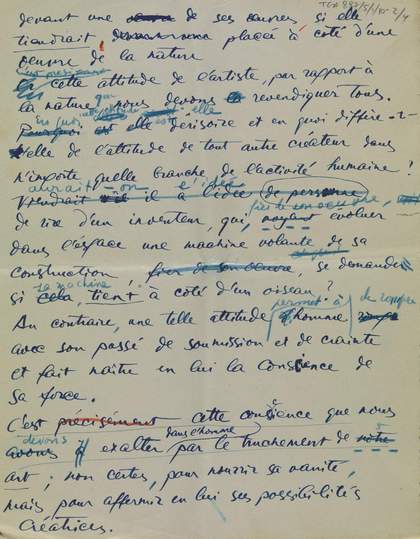 devant une de ses œuvres, si elle
tiendrait placée à côté d'une
œuvre de la nature
cette attitude de l'artiste, par rapport à
la nature, nous devons la revendiquer tous.
En quoi est elle
Pourquoi est elle dérisoire et en quoi diffère-t-
elle de l'attitude de tout autre créateur dans
n'importe quelle branche de l'activité humaine ?
aurait-on l'idée
Viendrait il à l'idée de personne
de rire d'un inventeur, qui, voyant évoluer
dans l'espace une machine volante de sa
construction, fier de son œuvre, se demande
la machine
si cela, tient à côté d'un oiseau ?
permet à de rompre
Au contraire, une telle attitude l'homme rompt
avec son passé de soumission et de crainte
et fait naître en lui la conscience de
sa force.
C'est précisément cette conscience que nous
devons dans l'homme
avons à exalter par le truchement de notre
art ; non certes, pour nourrir sa vanité,
mais pour affermir en lui ses possibilités
créatrices.